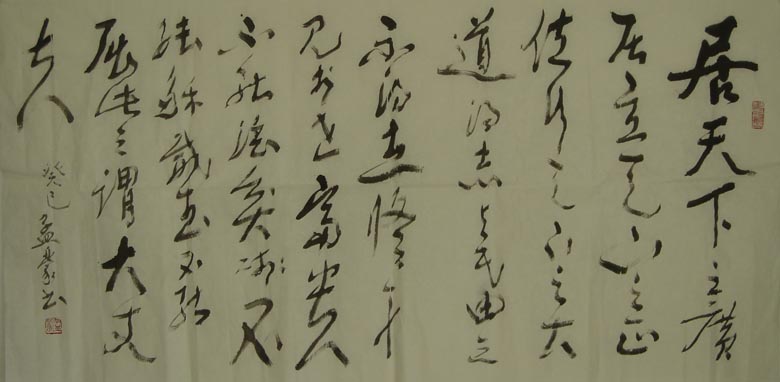 居天下之廣
居立天下之正
位行天下之大
道得志与民由之
不得志修身
见於世富贵
不能淫贫贱不
能移威武不能
屈此之謂大丈
夫
癸巳孟书